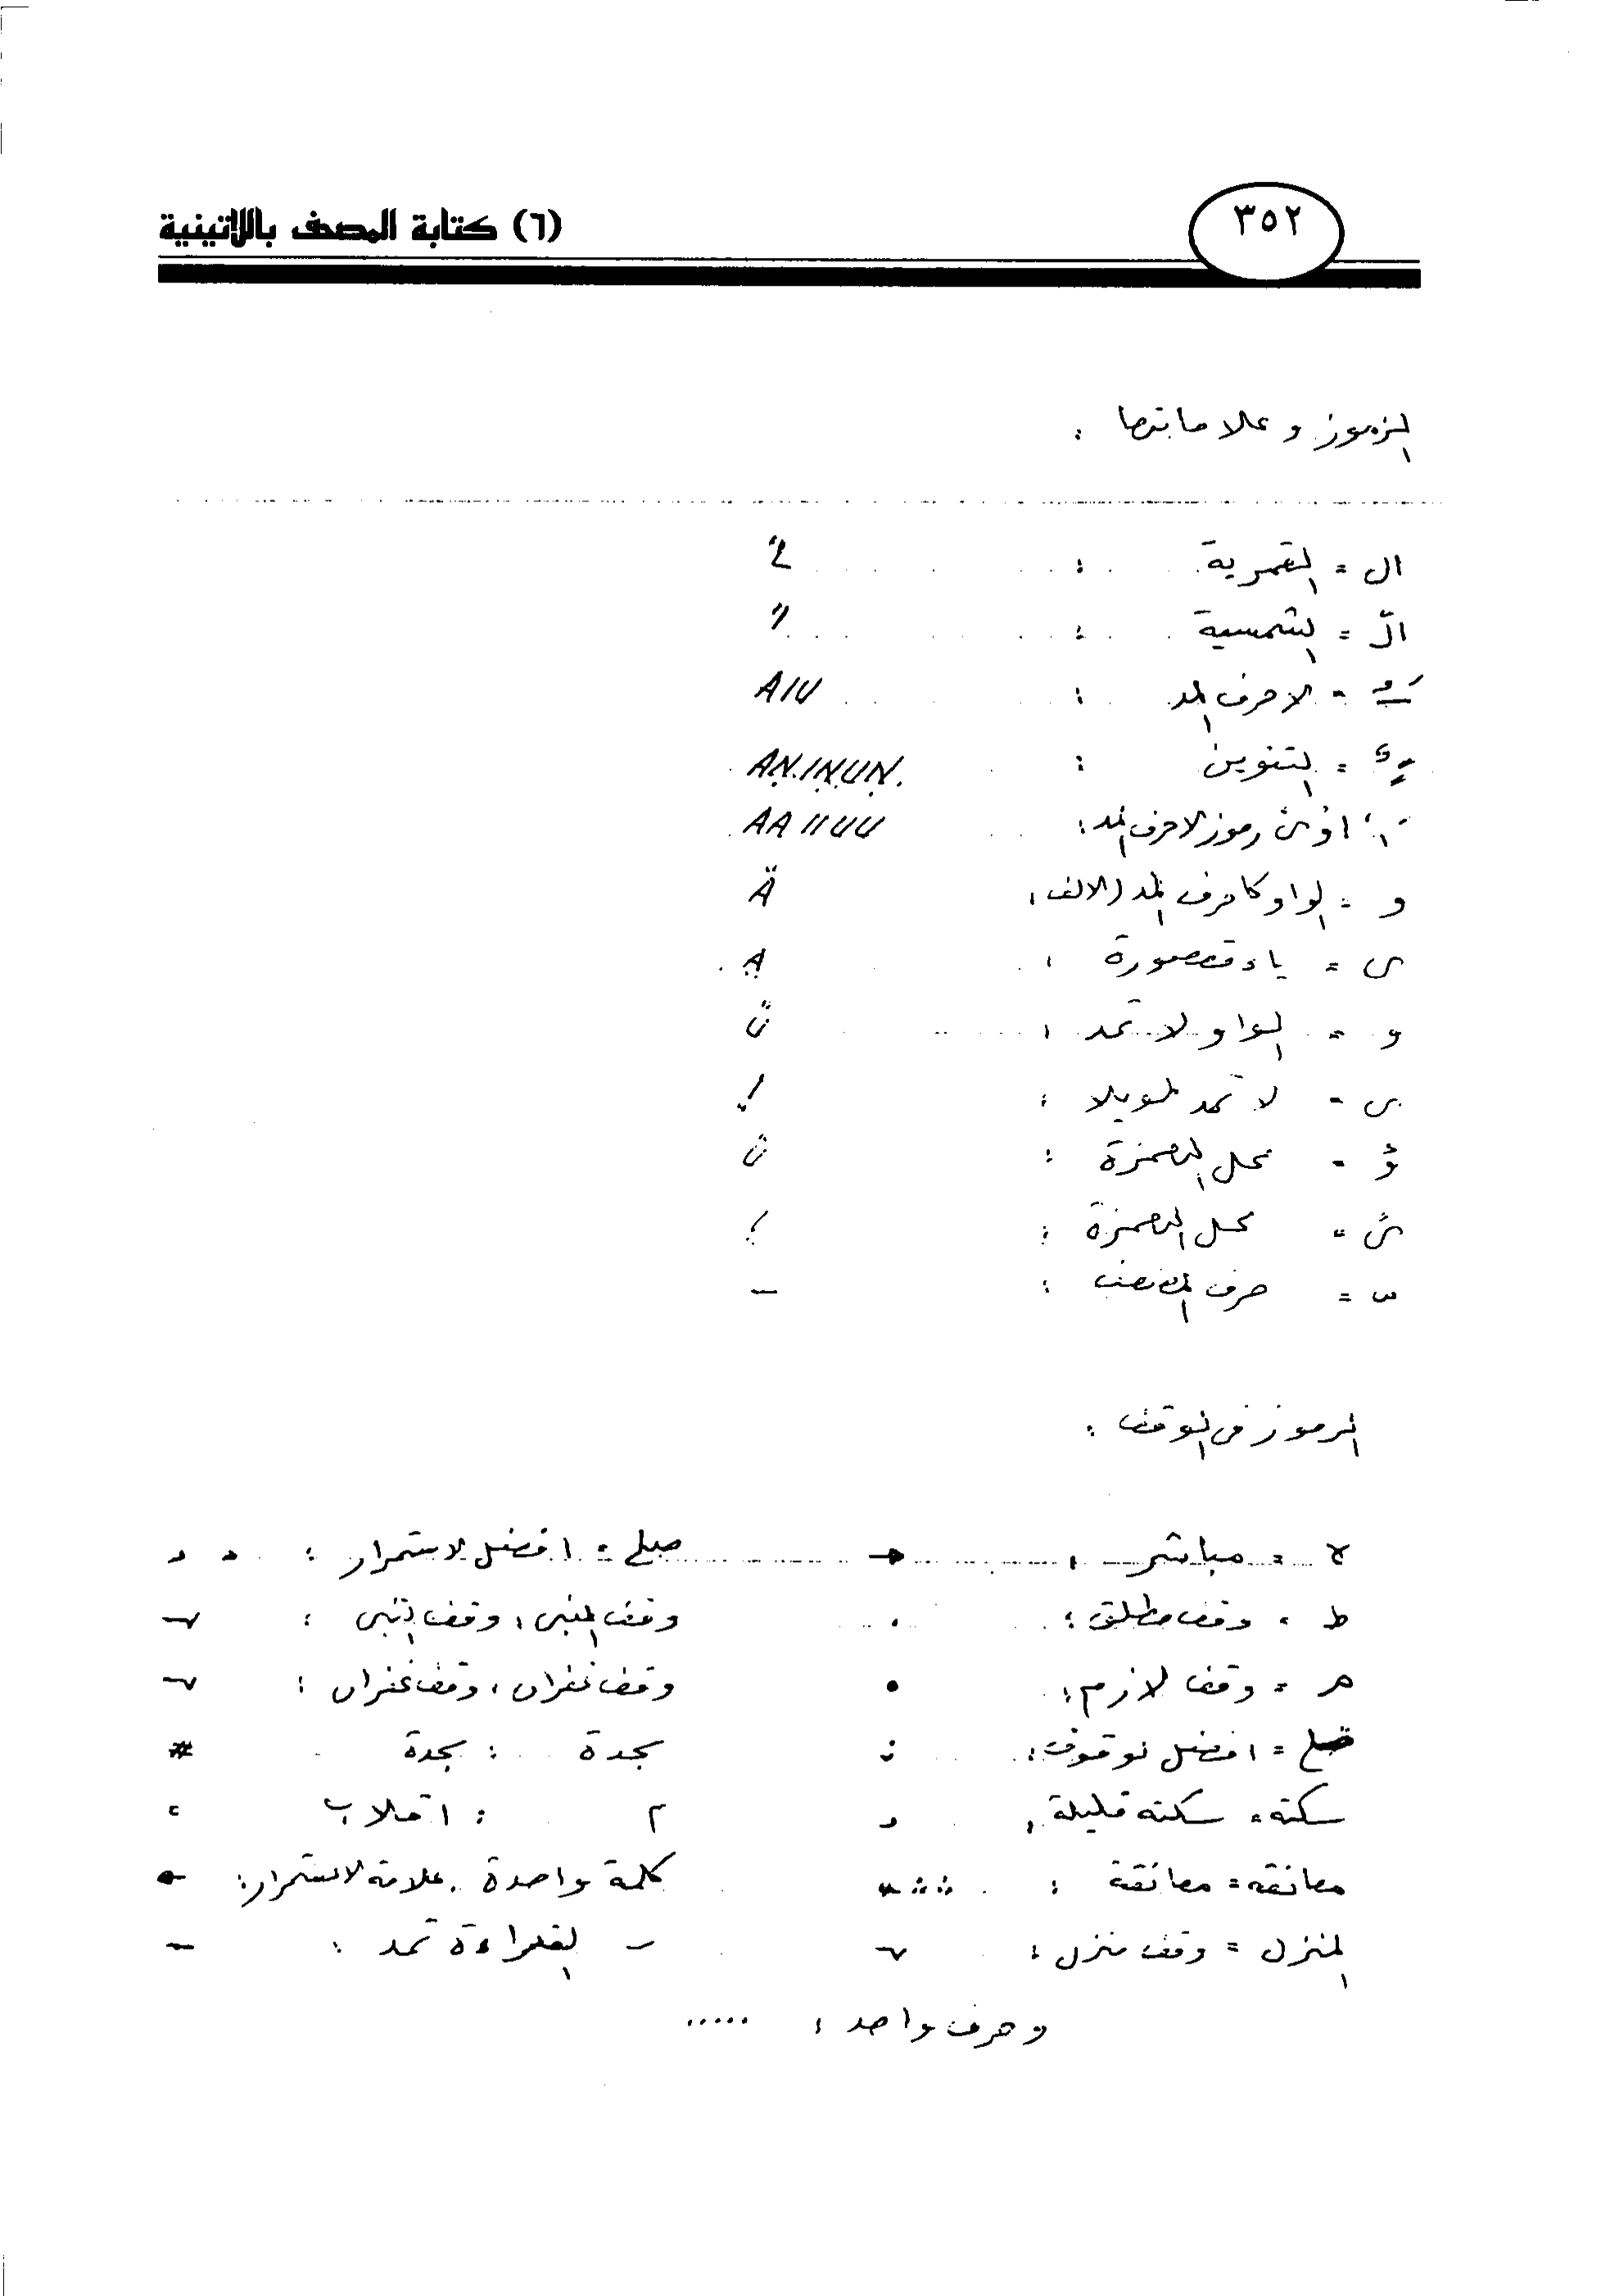 ٣٥٢
(٦) كتابة المصحف باللاتينية
الرموز و علاماتها :
ال = القمرية :
الّ = الشمسية : "
- الاحرف المد : AIU
= التنوين : ẠṆ.IṆUṆ.
رموز الاحرف المد : AA II UU
و = الواو كاحرف المد (الالف : Ä
ى = ياء قصورة : A
و = الواو لا تمد :
ى - لا تمد طويلا :
ؤ - محل الهمزة :
ئ = محل الهمزة :
= حرف : –
الرموز فى الوقف :
لا = مباشر : صلے = افضل الاستمرار :
ط = وقف مطلق : . وقف النبى : وقف النبى :
م = وقف لازم : • وقف غفران : وقف غفران :
= افضل نوقوف : سجدة : سجدة #
سكته = سكتة قليلة : م : اقلاب
معانقه = معانقة : ∴ ∴ كلمة واحدة . علامة الاستمرار :
المنزل = وقف منزل : ~ القراءة تمد : –
وحرف واحد : .....